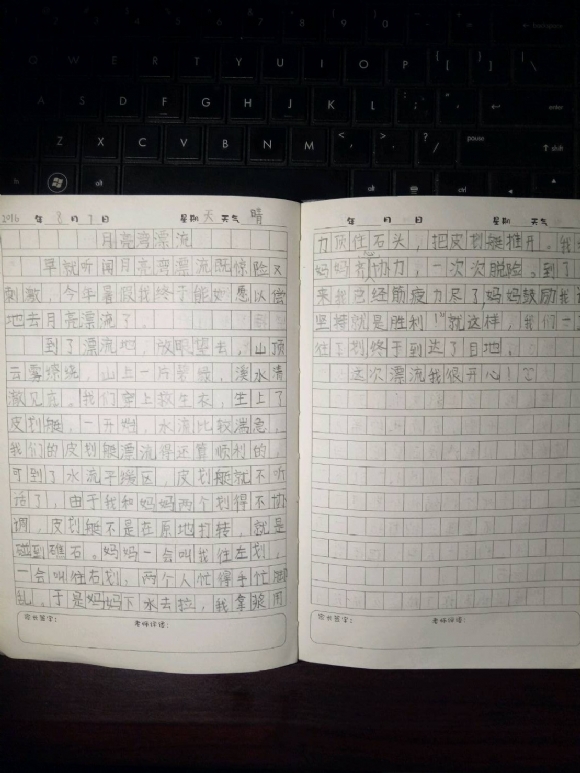 backspace
Q W E R T Y U I O P { [ } ] | \
A S D F G H J K L : ; " ' enter
Z X C V B N M < , > . ? / pause shift
alt alt ctrl
2016 年 8 月 7 日 星期 天 天气 晴
月亮弯漂流
早就听闻月亮弯漂流既惊险又
刺激，今年暑假我终于能如愿以偿
地去月亮漂流了。
到了漂流地，放眼望去，山顶
云雾缭绕，山上一片翠绿，溪水清
澈见底。我们穿上救生衣，坐上了
皮划艇，一开始，水流比较湍急，
我们的皮划艇漂流得还算顺利的，
可到了水流平缓区，皮划艇就不听
话了，由于我和妈妈两个划得不协
调，皮划艇不是在原地打转，就是
碰到礁石。妈妈一会叫我往左划，
一会叫往右划，两个人忙得手忙脚
乱。于是妈妈下水去拉，我拿桨用
家长签字： 老师评语：
年 月 日 星期 天气
力顶住石头，把皮划艇推开。我
妈妈齐心协力，一次次脱险。到了
来我已经筋疲力尽了妈妈鼓励我
坚持就是胜利！”就这样，我们一
往下划终于到达了目地。
这次漂流我很开心！
家长签字： 老师评语：